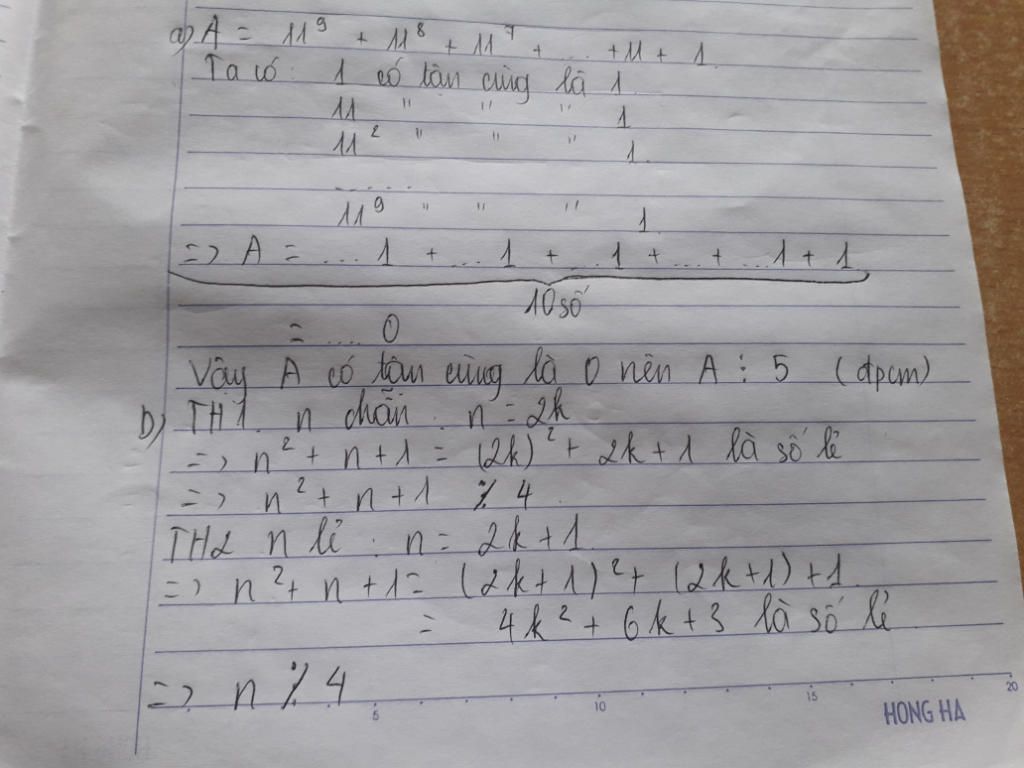 a) A = 11⁹ + 11⁸ + 11⁷ + ... + 11 + 1.
Ta có: 1 có tận cùng là 1
11 " " " 1
11² " " " 1.
.......
11⁹ " " " 1
=> A = ...1 + ...1 + ...1 + ... + ...1 + 1
10 số
= .... 0
Vậy A có tận cùng là 0 nên A ⋮ 5 (đpcm)
b) TH1. n chẵn : n = 2k
=> n² + n + 1 = (2k)² + 2k + 1 là số lẻ
=> n² + n + 1 ⋮̸ 4.
TH2 n lẻ : n = 2k + 1.
=> n² + n + 1 = (2k + 1)² + (2k + 1) + 1.
= 4k² + 6k + 3 là số lẻ
=> n ⋮̸ 4
5 10 15 20
HONG HA